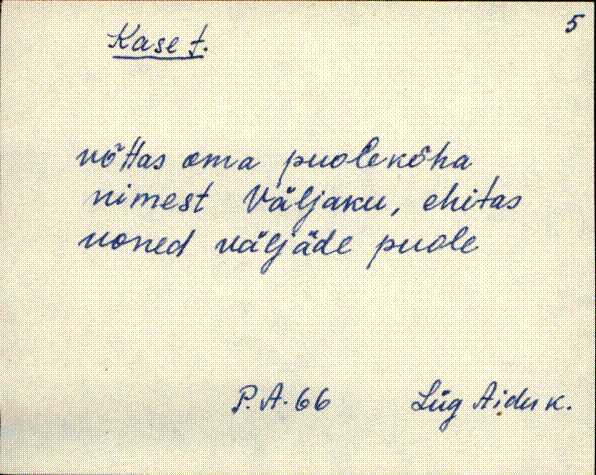 5
Kase t.
võttas oma puolekõha
nimest Väljaku, ehitas
uoned väljäde puole
P. A. 66 Lüg Aidu k.